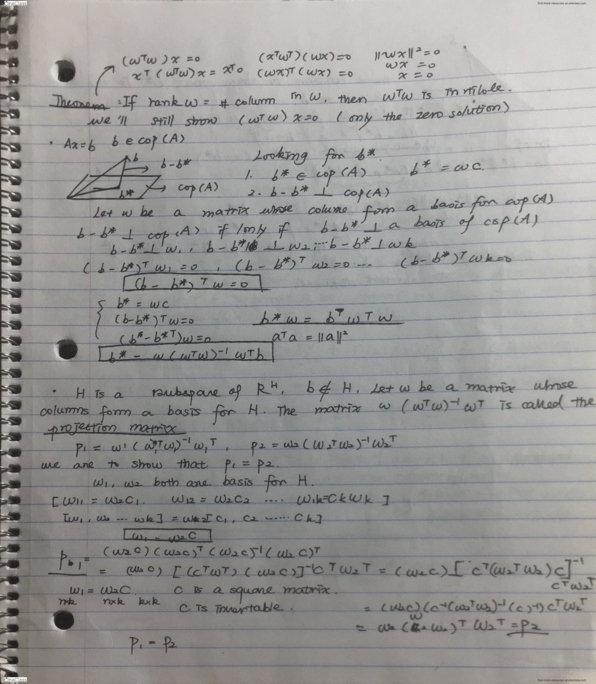 (wᵀw)x = 0 (xᵀwᵀ)(wx)=0 ||wx||² = 0
xᵀ(wᵀw)x = xᵀ0 (wx)ᵀ(wx) = 0 wx = 0
x = 0
Theorem: If rank w = # column in w, then wᵀw is
we'll still show (wᵀw)x=0 (only the zero solution)
• Ax=b b ∈ cop(A)
b
b-b*
b*
cop(A)
Looking for b*
1. b* ∈ cop(A) b* = wc.
2. b-b* ⊥ cop(A)
Let w be a matrix whose column form a basis for cop(A)
b-b* ⊥ cop(A) if/only if b-b* ⊥ a basis of cop(A)
b-b* ⊥ w₁, b-b* ⊥ w₂ ... b-b* ⊥ wk
(b-b*)ᵀw₁=0, (b-b*)ᵀw₂=0 ... (b-b*)ᵀwk=0
(b-b*)ᵀw=0
b* = wc
(b-b*)ᵀw=0 b*w = bᵀwᵀw
(b*-b*ᵀ)w=0 aᵀa = ||a||²
b* = w(wᵀw)⁻¹wᵀb
• H is a subspace of Rᴴ, b ∉ H. Let w be a matrix whose
columns form a basis for H. The matrix w(wᵀw)⁻¹wᵀ is called the
projection matrix
P₁ = w'(w₁ᵀw)⁻¹w₁ᵀ, P₂ = w₂(w₂ᵀw₂)⁻¹w₂ᵀ
we are to show that P₁ = P₂.
w₁, w₂ both are basis for H.
[w₁₁ = w₂c₁, w₁₂ = w₂c₂ .... w₁k=ckwk]
[w₁, w₂ ... wk] = w₂[c₁, c₂ ...... ck]
w₁ = w₂C
P₁ = (w₂C)(w₂C)ᵀ(w₂C)⁻¹(w₂C)ᵀ
= (w₂C)[(cᵀwᵀ)(w₂C)]⁻¹Cᵀw₂ᵀ = (w₂C)[cᵀ(w₂ᵀw₂)c]⁻¹cᵀw₂ᵀ
w₁ = w₂C. C is a square matrix.
nxk nxk kxk C is invertable. = (w₂C)(c⁻¹(w₂ᵀw₂)⁻¹(c)⁻¹)cᵀw₂ᵀ
= w₂(w₂)ᵀw₂ᵀ = P₂
P₁ = P₂